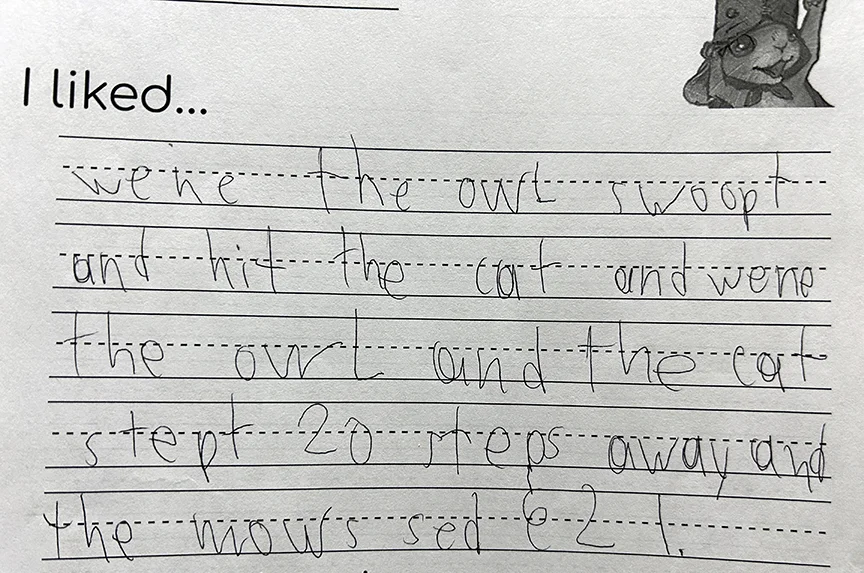 I liked...
wene the owl swoopt
and hit the cat and wene
the owl and the cat
stept 20 steps away and
the mows sed e21.